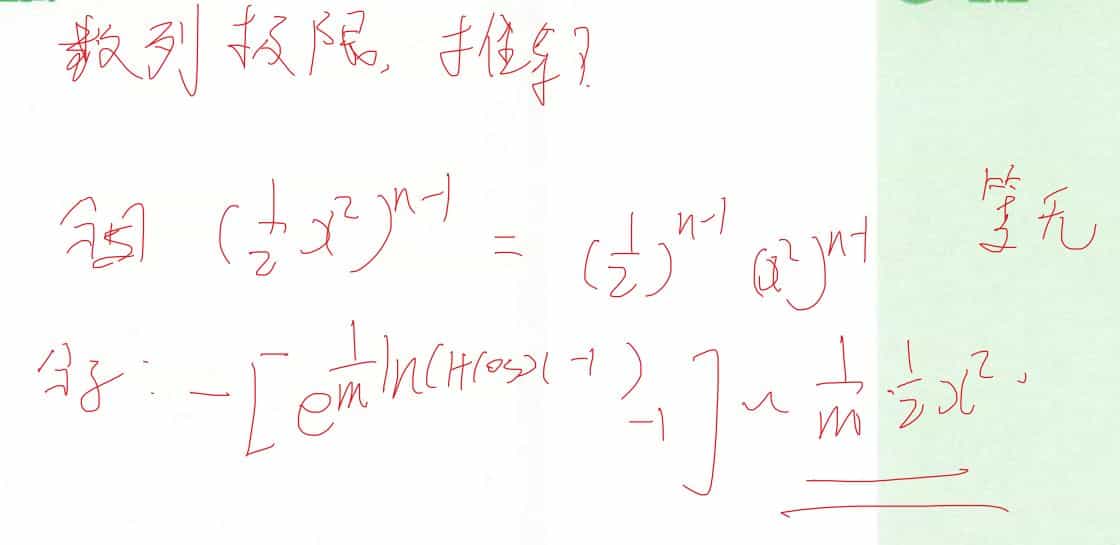 数列极限, 推广?
分母 (1/2 x²)^{n-1} = (1/2)^{n-1} (x²)^{n-1} 等无
分子: -[e^{1/m ln(1+cosx-1)} -1] ~ 1/m · 1/2 x².